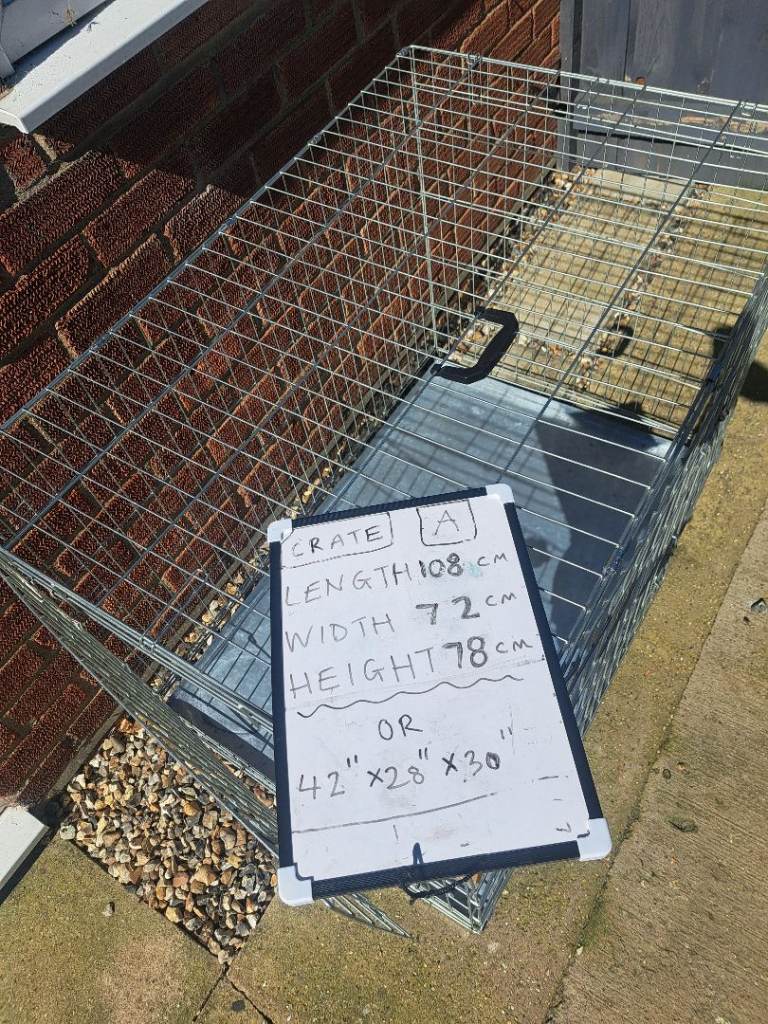 CRATE A
LENGTH 108 CM
WIDTH 72 CM
HEIGHT 78 CM
OR
42" x 28" x 30"